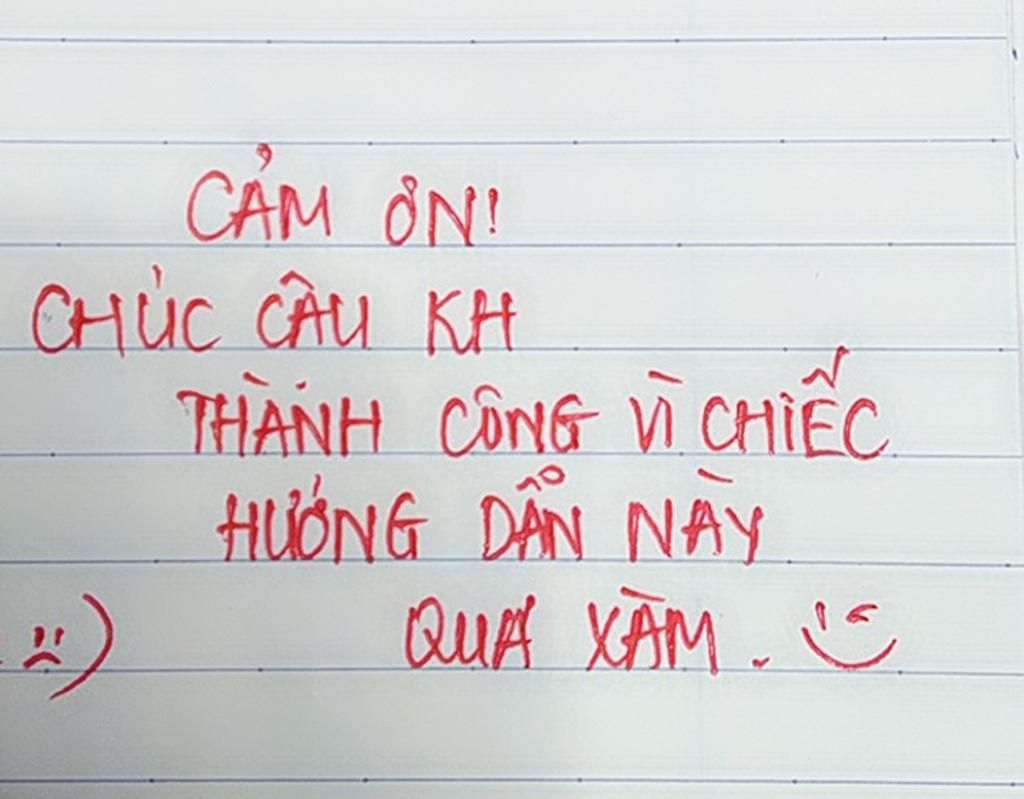 CẢM ƠN!
CHÚC CÂU KH
THÀNH CÔNG VÌ CHIẾC
HƯỚNG DẪN NÀY
QUA XÀM.